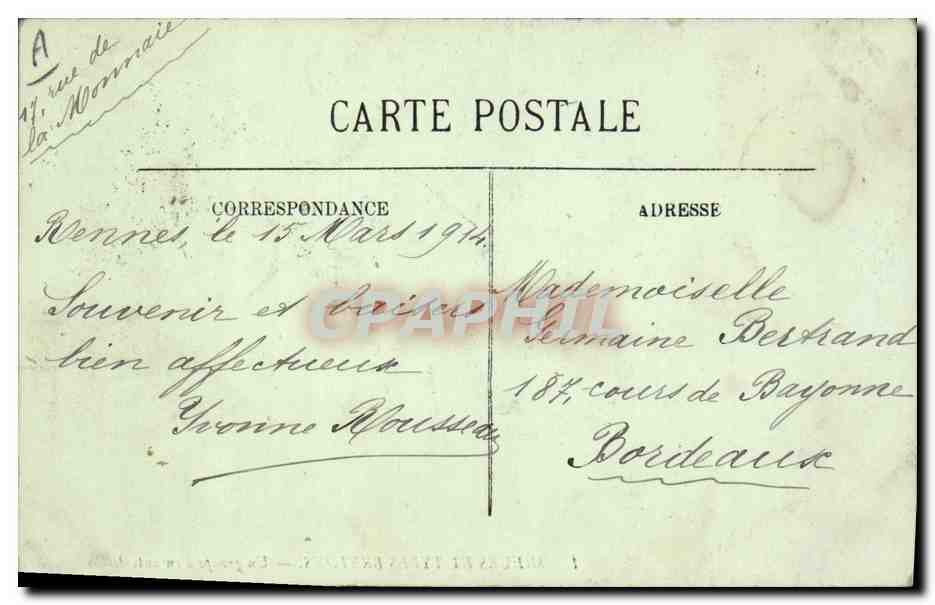 A
17, rue de
la Monnaie
CARTE POSTALE
CORRESPONDANCE
Rennes, le 15 Mars 1914.
Souvenir et baisers
bien affectueux
Yvonne Rousseau
ADRESSE
Mademoiselle
Germaine Bertrand
187, cours de Bayonne
Bordeaux
CPAPHIL